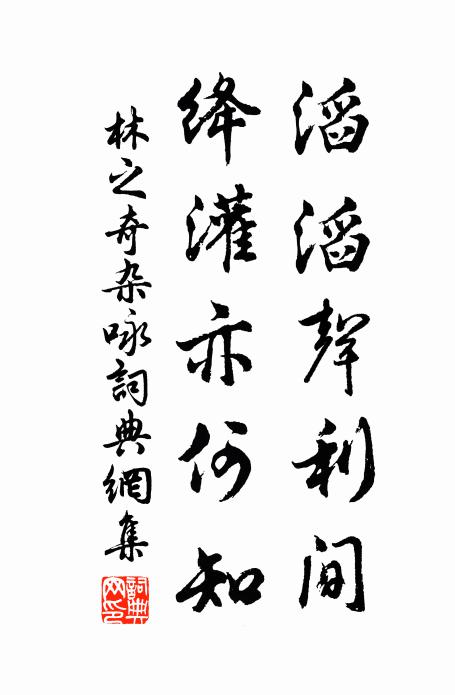 滔滔聲利间
绛灌亦何知
林之奇杂咏詞典網集
詞典网印